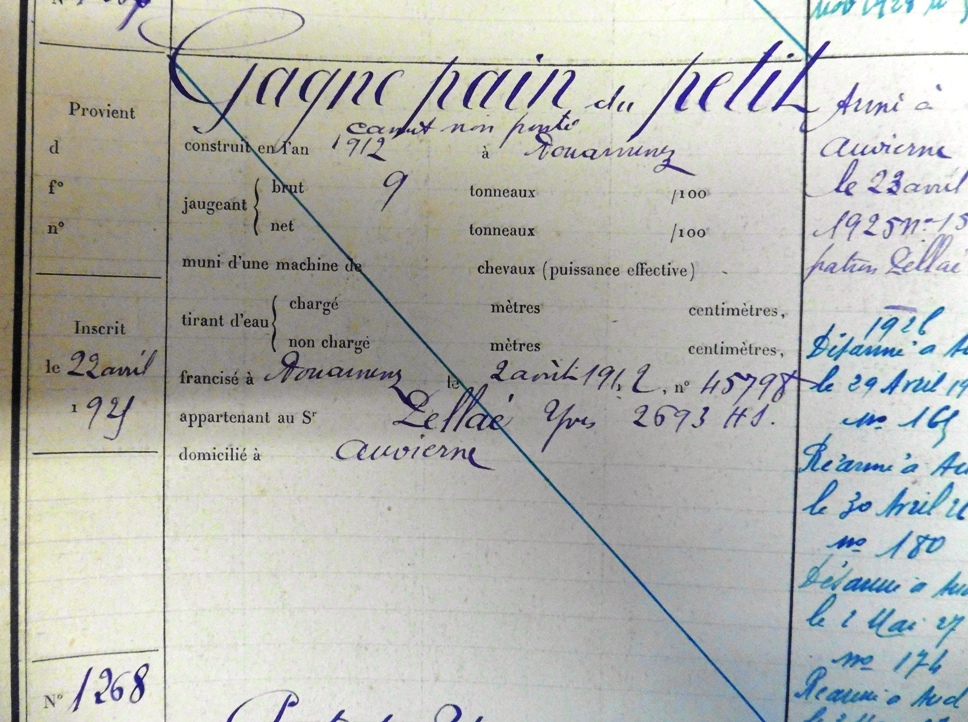 Nov 1924
Gagne pain du petit
canot non ponté
Provient
d
f°
n°
construit en l'an 1912 à Douarnenez
jaugeant brut 9 tonneaux /100
net tonneaux /100
muni d'une machine de chevaux (puissance effective)
tirant d'eau chargé mètres centimètres,
non chargé mètres centimètres,
Inscrit
le 22 avril
1925
francisé à Douarnenez le 2 août 1912, n° 45798
appartenant au Sr Pellaé Yves 2693 HS.
domicilié à Auvierne
N° 1268
Armé à
Auvierne
le 23 avril
1925 n° 15
patron Pellaé
1926
Désarmé à Au
le 29 Avril 19
no 165
Réarmé à Au
le 30 Avril 26
no 180
Désarmé à Aud
le 2 Mai 27
no 174
Réarmé à Aud